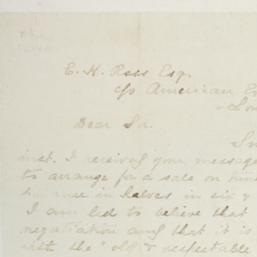 E. H. Ross Esq.
c/o American Ex
Lon
Dear Sir.
inst. I received your message
to arrange for a sale on
in halves in six &
I am led to believe that
negotiation and that it is
with the "old & respectable